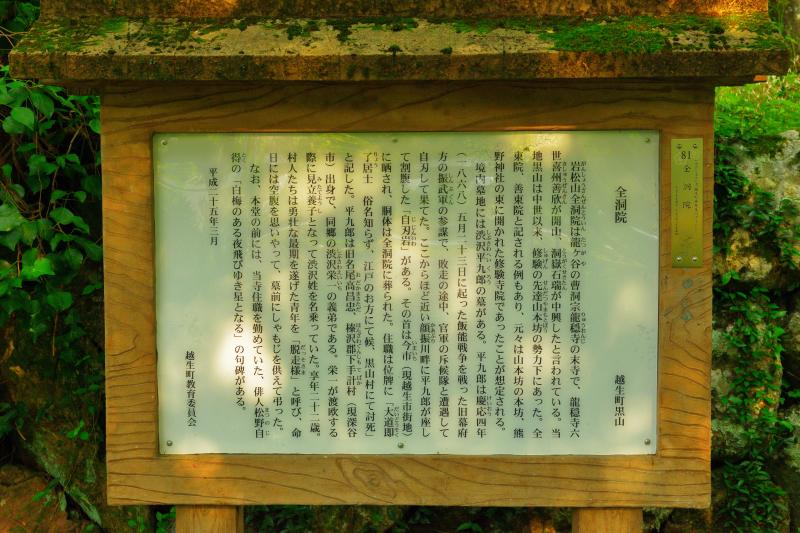 全洞院
越生町黒山
岩松山全洞院は龍ケ谷の曹洞宗龍穏寺の末寺で、龍穏寺六
世喜州善欣が開山、洞嶽石瑞が中興したと言われている。当
地黒山は中世以来、修験の先達山本坊の勢力下にあった。全
東院、善東院と記される例もあり、元々は山本坊の本坊、熊
野神社の東に開かれた修験寺院であったことが想定される。
境内墓地には渋沢平九郎の墓がある。平九郎は慶応四年
(一八六八)五月二十三日に起った飯能戦争を戦った旧幕府
方の振武軍の参謀で、敗走の途中、官軍の斥候隊と遭遇して
自刃して果てた。ここからほど近い顔振川畔に平九郎が座し
て割腹した「自刃岩」がある。その首は今市(現越生市街地)
に晒され、胴体は全洞院に葬られた。住職は位牌に「大道即
了居士 俗名知らず、江戸のお方にて候、黒山村にて討死」
と記した。平九郎は旧名尾高昌忠、榛沢郡下手計村(現深谷
市)出身で、同郷の渋沢栄一の義弟である。栄一が渡欧する
際に見立養子となって渋沢姓を名乗っていた。享年二十二歳。
村人たちは勇壮な最期を遂げた青年を「脱走様」と呼び、命
日には空腹を思いやって、墓前にしゃもじを供えて弔った。
なお、本堂の前には、当寺住職を勤めていた、俳人松野自
得の「白梅のある夜飛びゆき星となる」の句碑がある。
平成二十五年三月
越生町教育委員会
81 全洞院